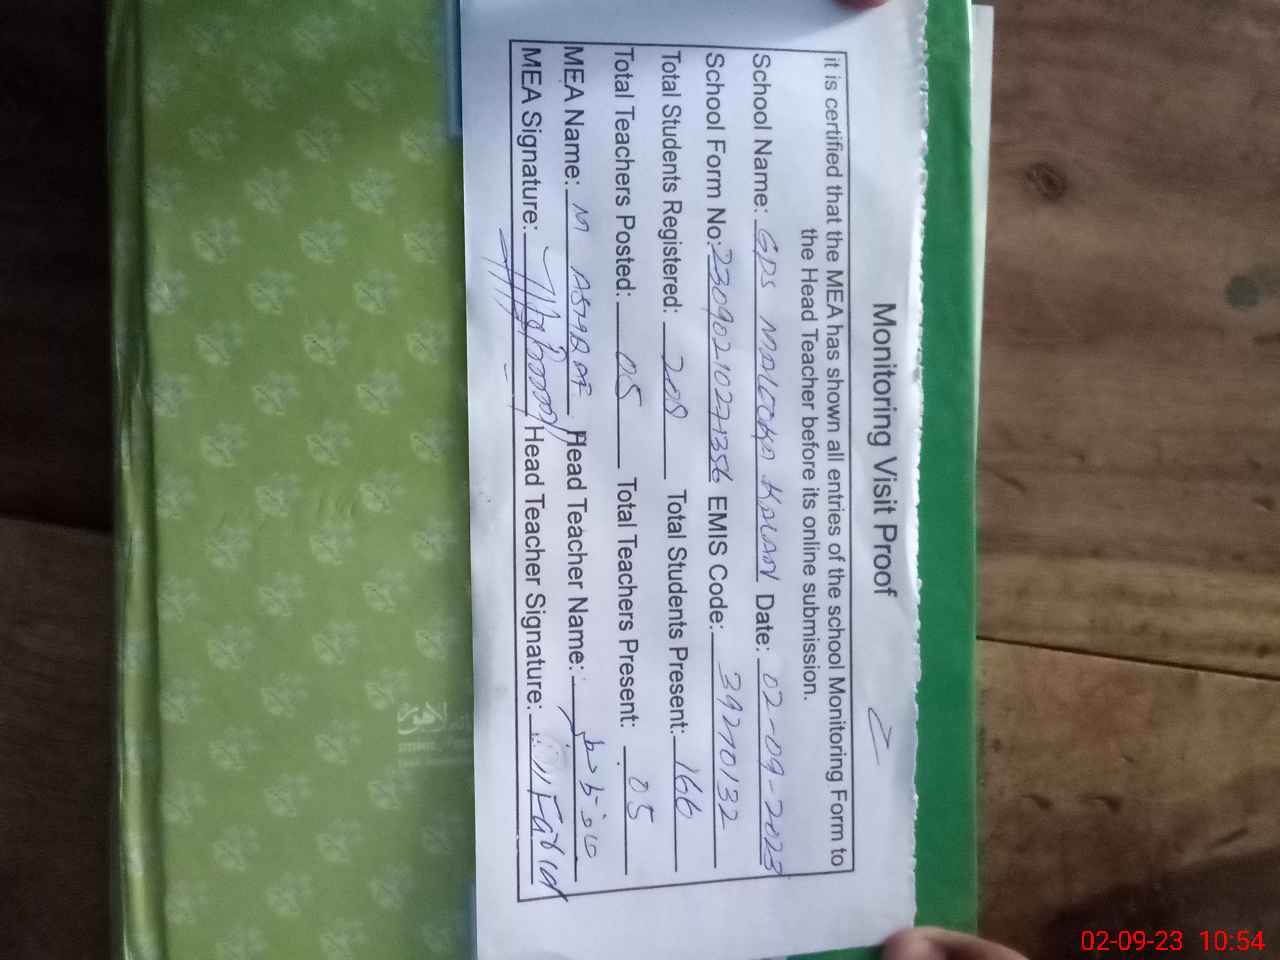 Monitoring Visit Proof
it is certified that the MEA has shown all entries of the school Monitoring Form to
the Head Teacher before its online submission.
School Name: GPS MALOOKA KALAN Date: 02-09-2023
School Form No: 23090210271356 EMIS Code: 39270132
Total Students Registered: 208 Total Students Present: 166
Total Teachers Posted: 05 Total Teachers Present: 05
MEA Name: M ASHRAF Head Teacher Name:
MEA Signature: Head Teacher Signature: Farid
02-09-23 10:54